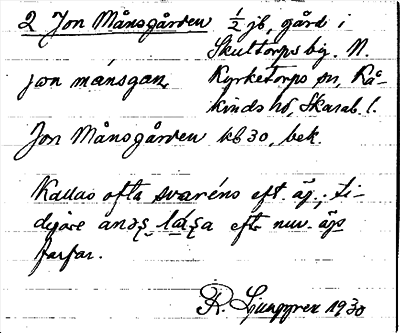 2 Jon Månsgården ½ jb, gård i
Skultorps by. N.
jɷn mánsgan Kyrketorps sn, Kå-
kinds hd, Skarab. l.
Jon Månsgården kb 30, bek.
Kallas ofta svaréns eft. äg.; ti-
digare andəs lássa eft. nuv. ägs
farfar.
R. Ljunggren 1930